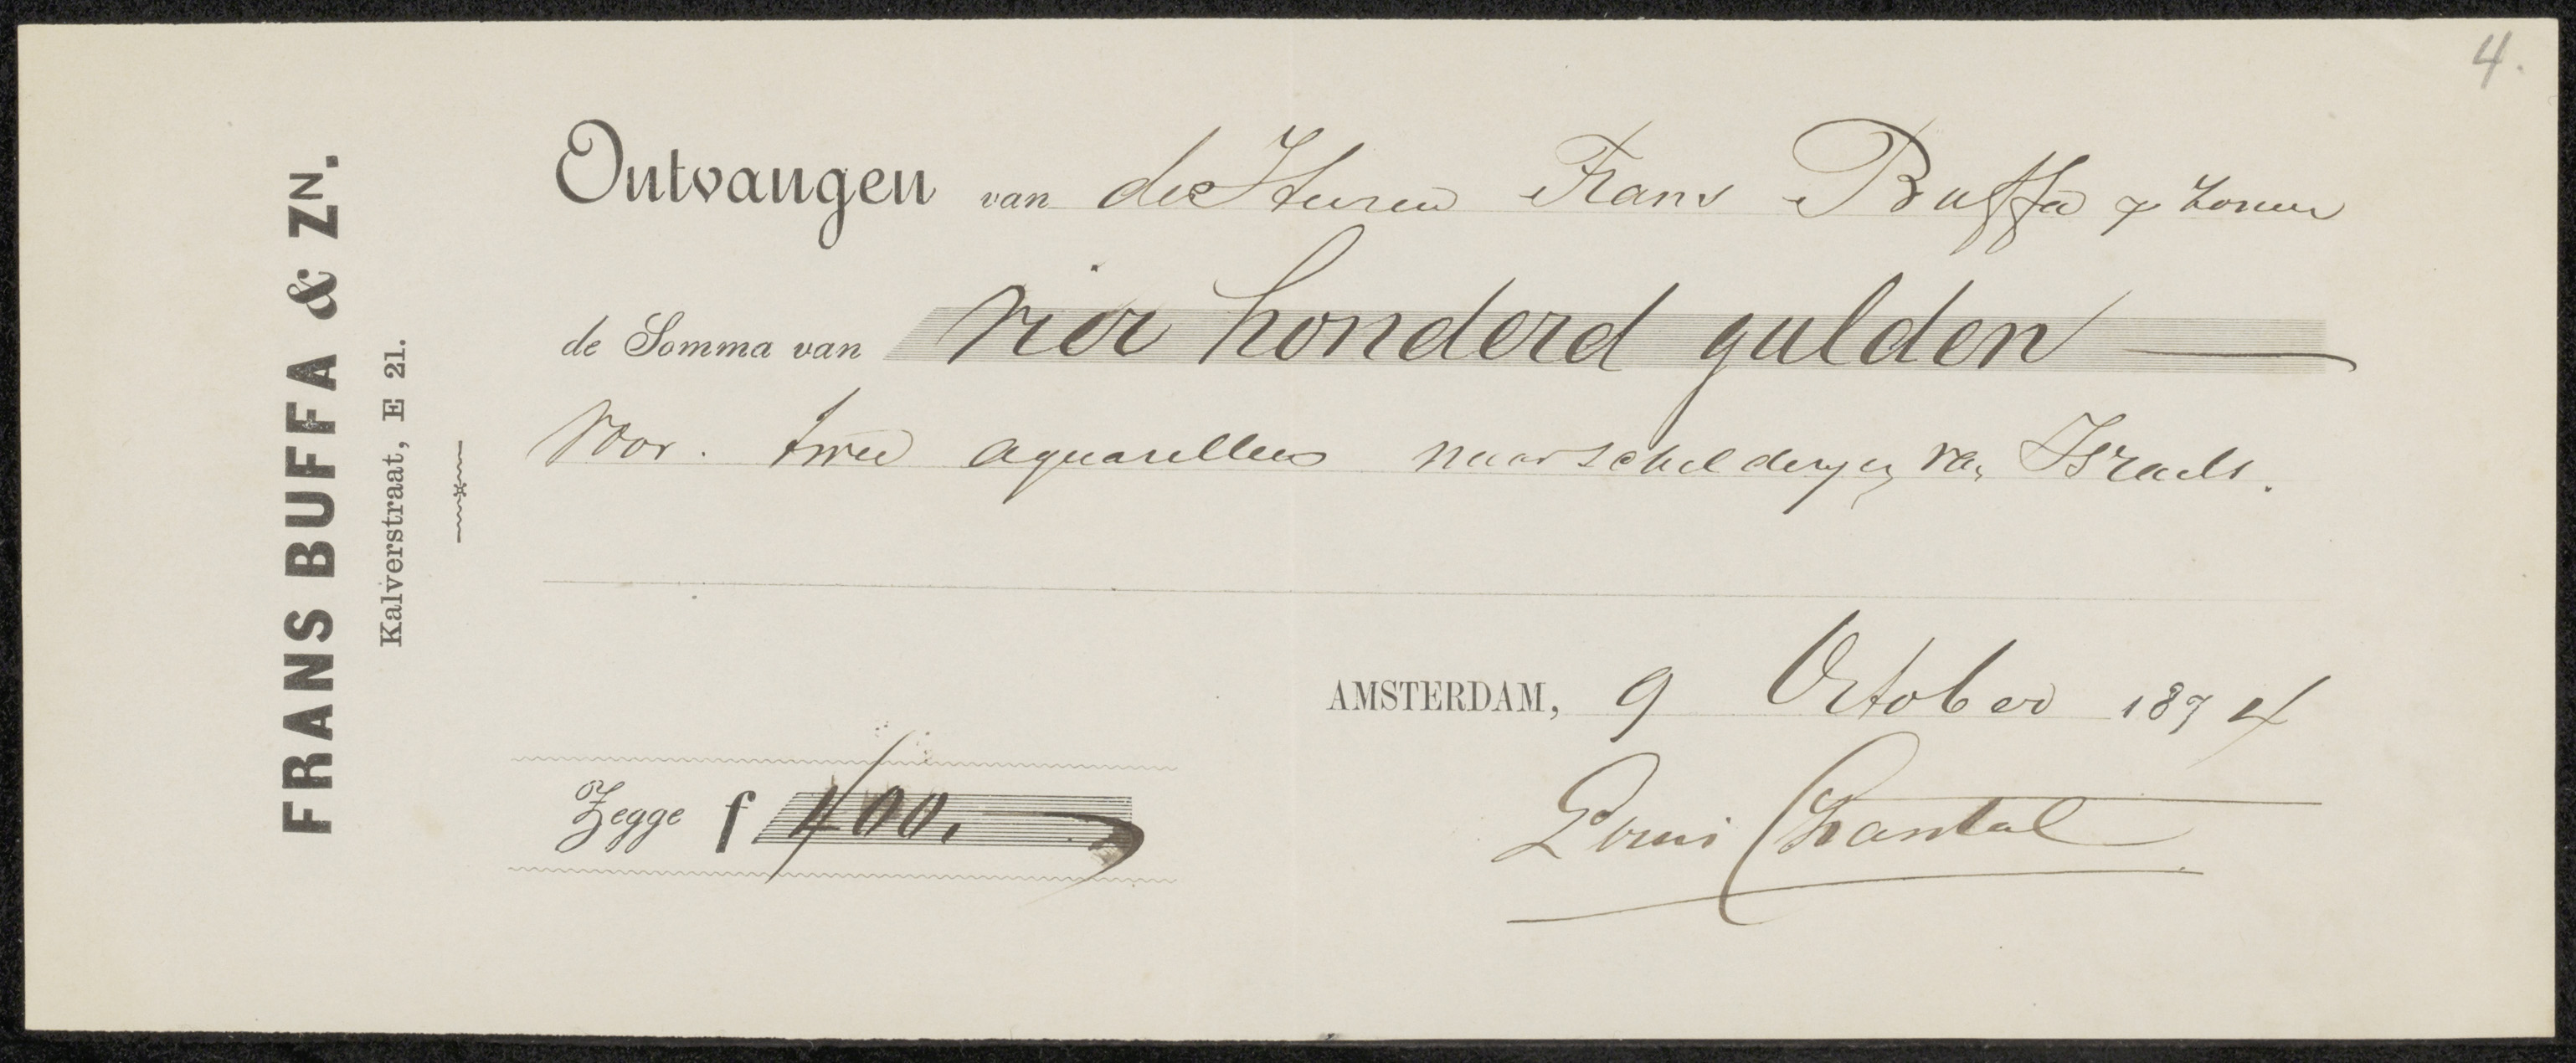 4.
FRANS BUFFA & ZN.
Kalverstraat, E 21.
Ontvangen van de Heeren Frans Buffa & Zonen
de Somma van vier honderd gulden
Voor. twee aquarellen naar schilderyen van Israels.
AMSTERDAM, 9 October 1874
Zegge f 400.
Louis Chantal